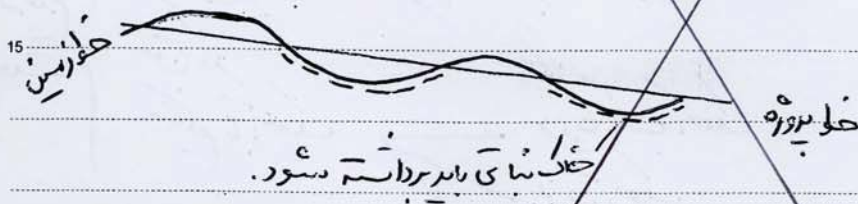 15
خط زمین
خط پروژه
خاک نباتی باید برداشته شود.